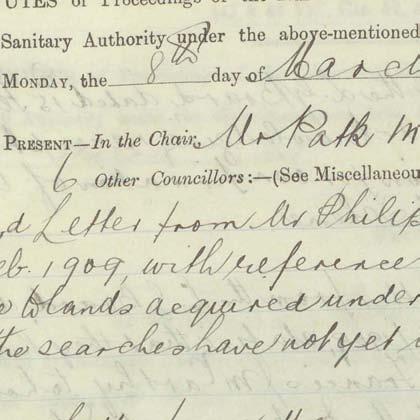 UTES of Proceedings of the
Sanitary Authority under the above-mentioned
MONDAY, the 8th day of March
PRESENT—In the Chair, Mr Patk M
6 Other Councillors:—(See Miscellaneou
rd Letter from Mr Philip
eb. 1909, with reference
to lands acquired under
the searches have not yet